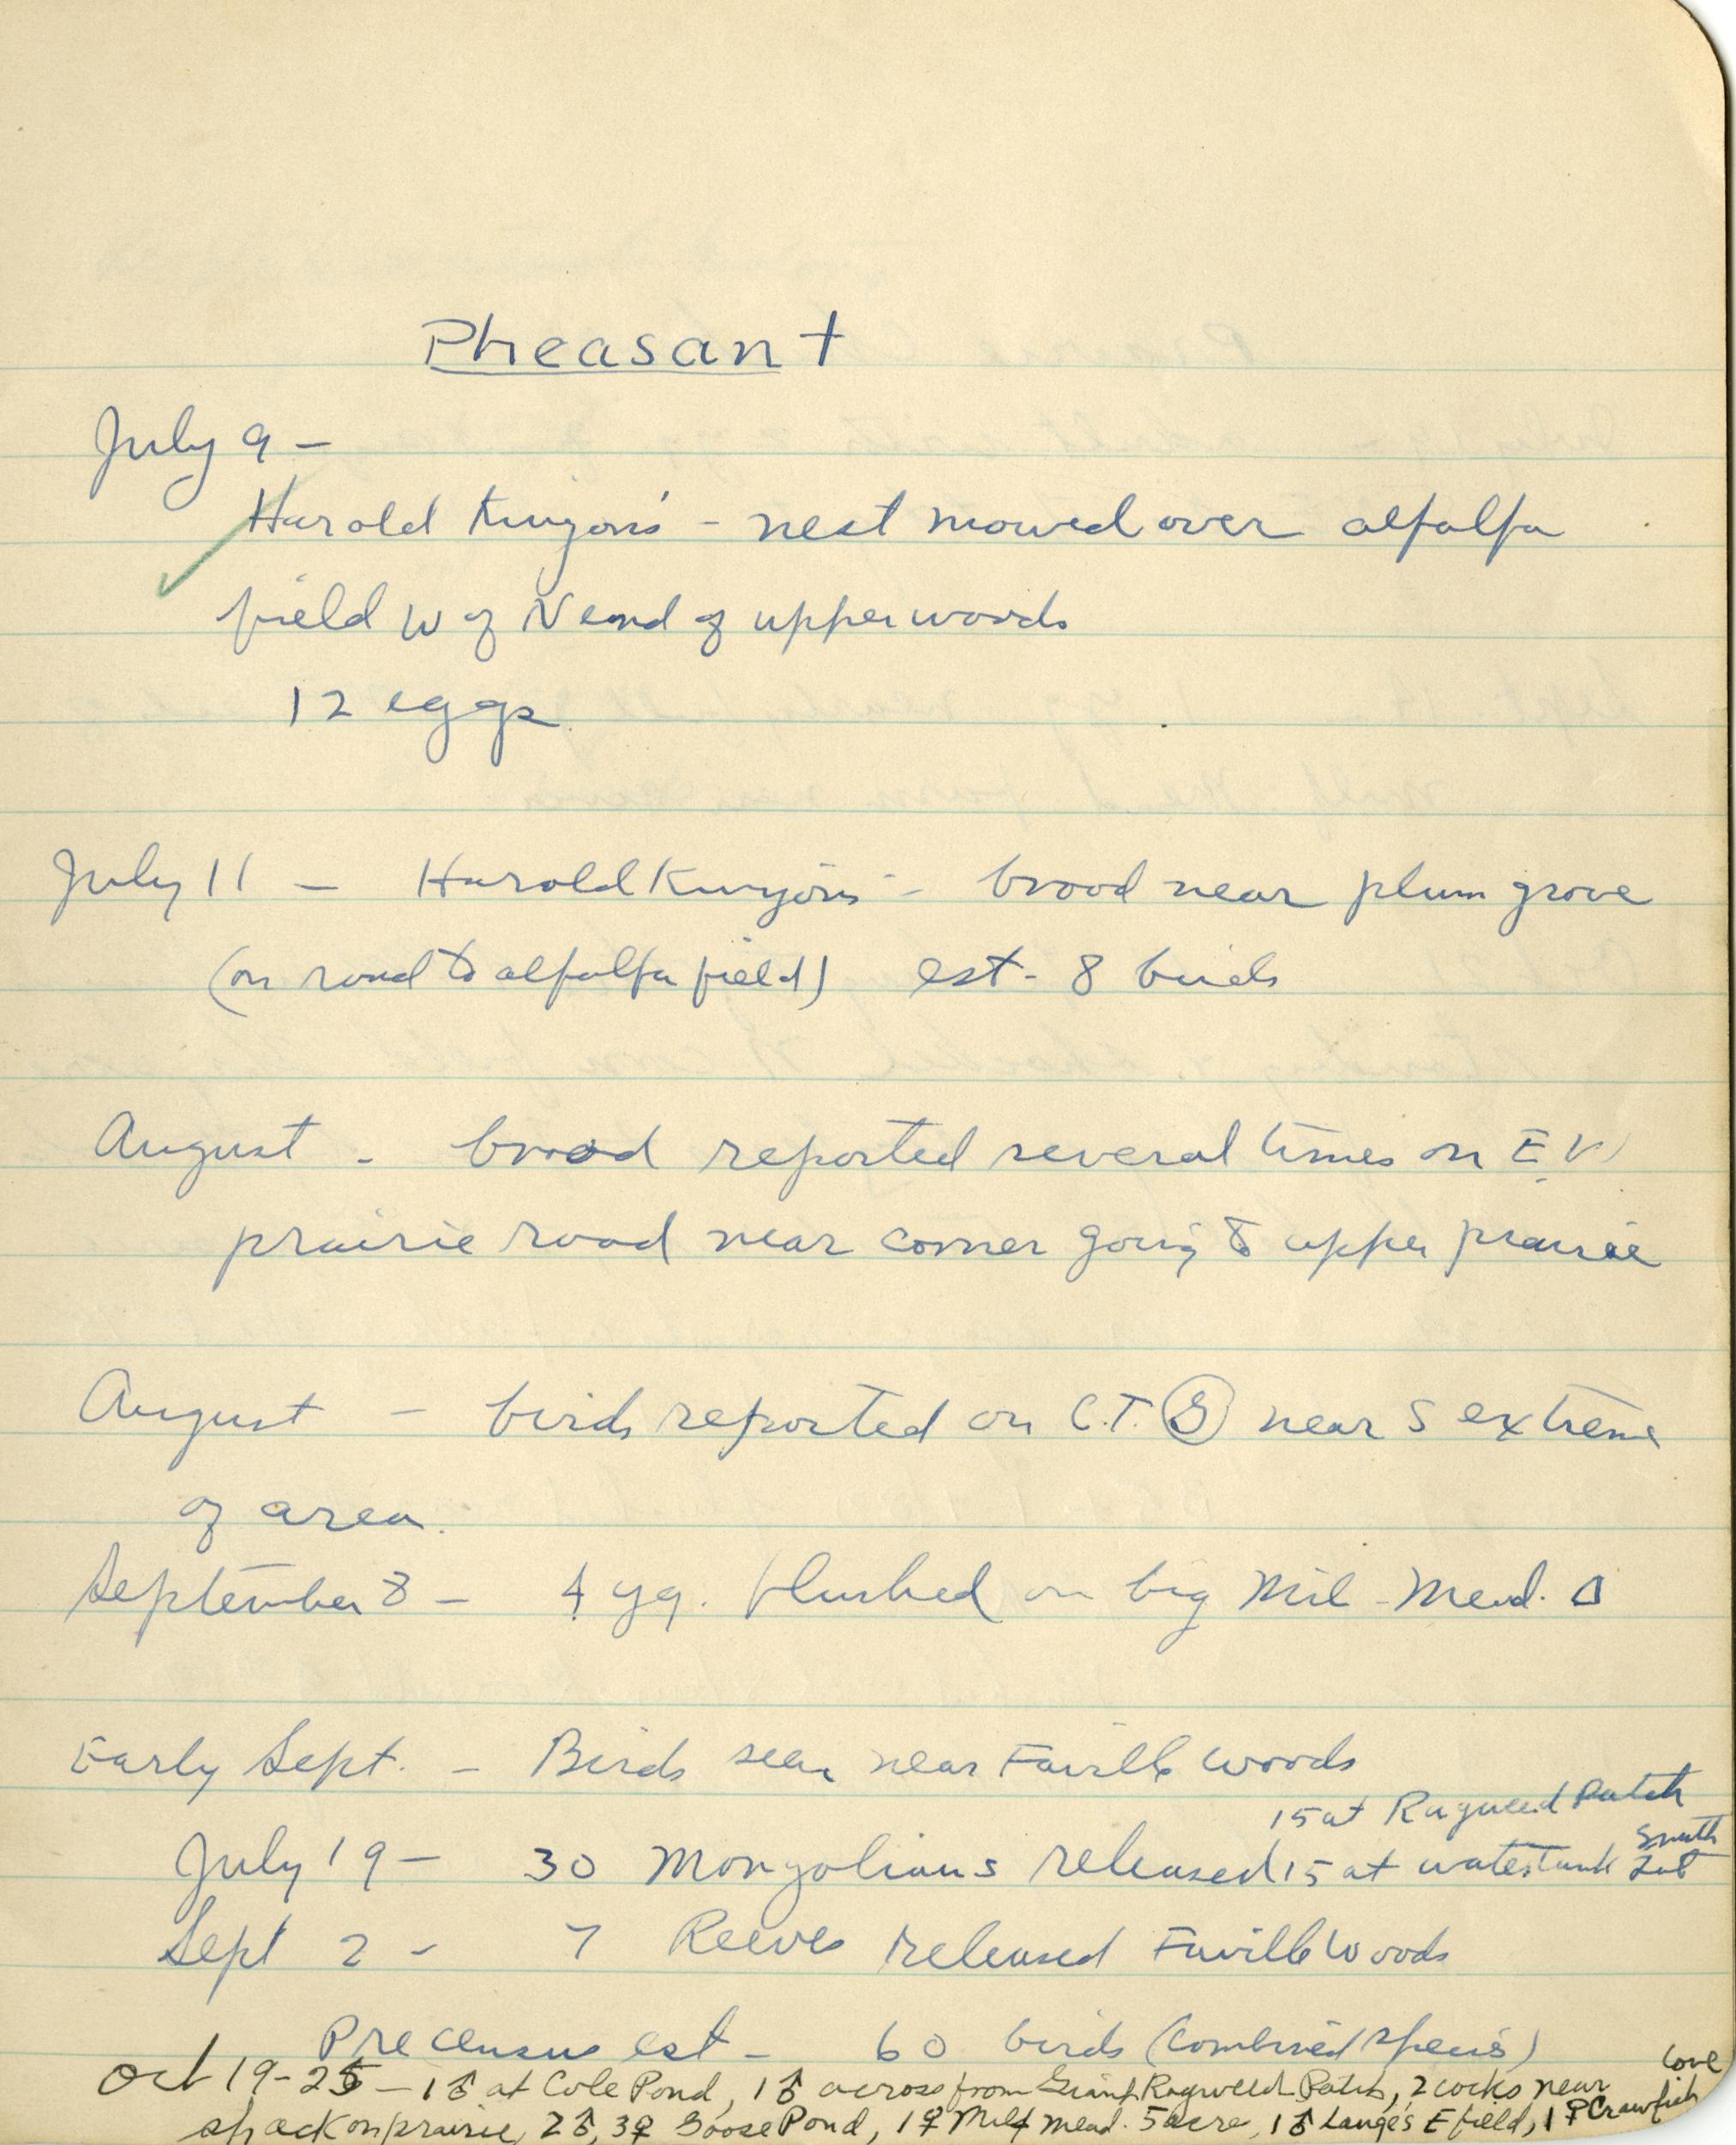 Pheasant
July 9 –
Harold Kinyon's – nest mowed over alfalfa
field W of N end of upper woods
12 eggs.
July 11 – Harold Kinyon's – brood near plum grove
(on road to alfalfa field) est- 8 birds
August - brood reported several times on E W
prairie road near corner going to upper prairie
August – birds reported on C.T. S near S extreme
of area.
September 8 – 4 yg. flushed on big Mil- Mead.
Early Sept. – Birds seen near Faville woods
15 at Ragweed Patch
July 19 – 30 Mongolians released 15 at watertank South
Sept 2 - 7 Reeves released Faville Woods
Precensus est – 60 birds (combined species)
Oct 19-25 – 1♂ at Cole Pond, 1♂ across from Giant Ragweed Patch, 2 cocks near
shack on prairie, 2♂, 3♀ Goose Pond, 1♀ Mead. 5 acre, 1♂ Lange's E field, 1♀ Crawfish